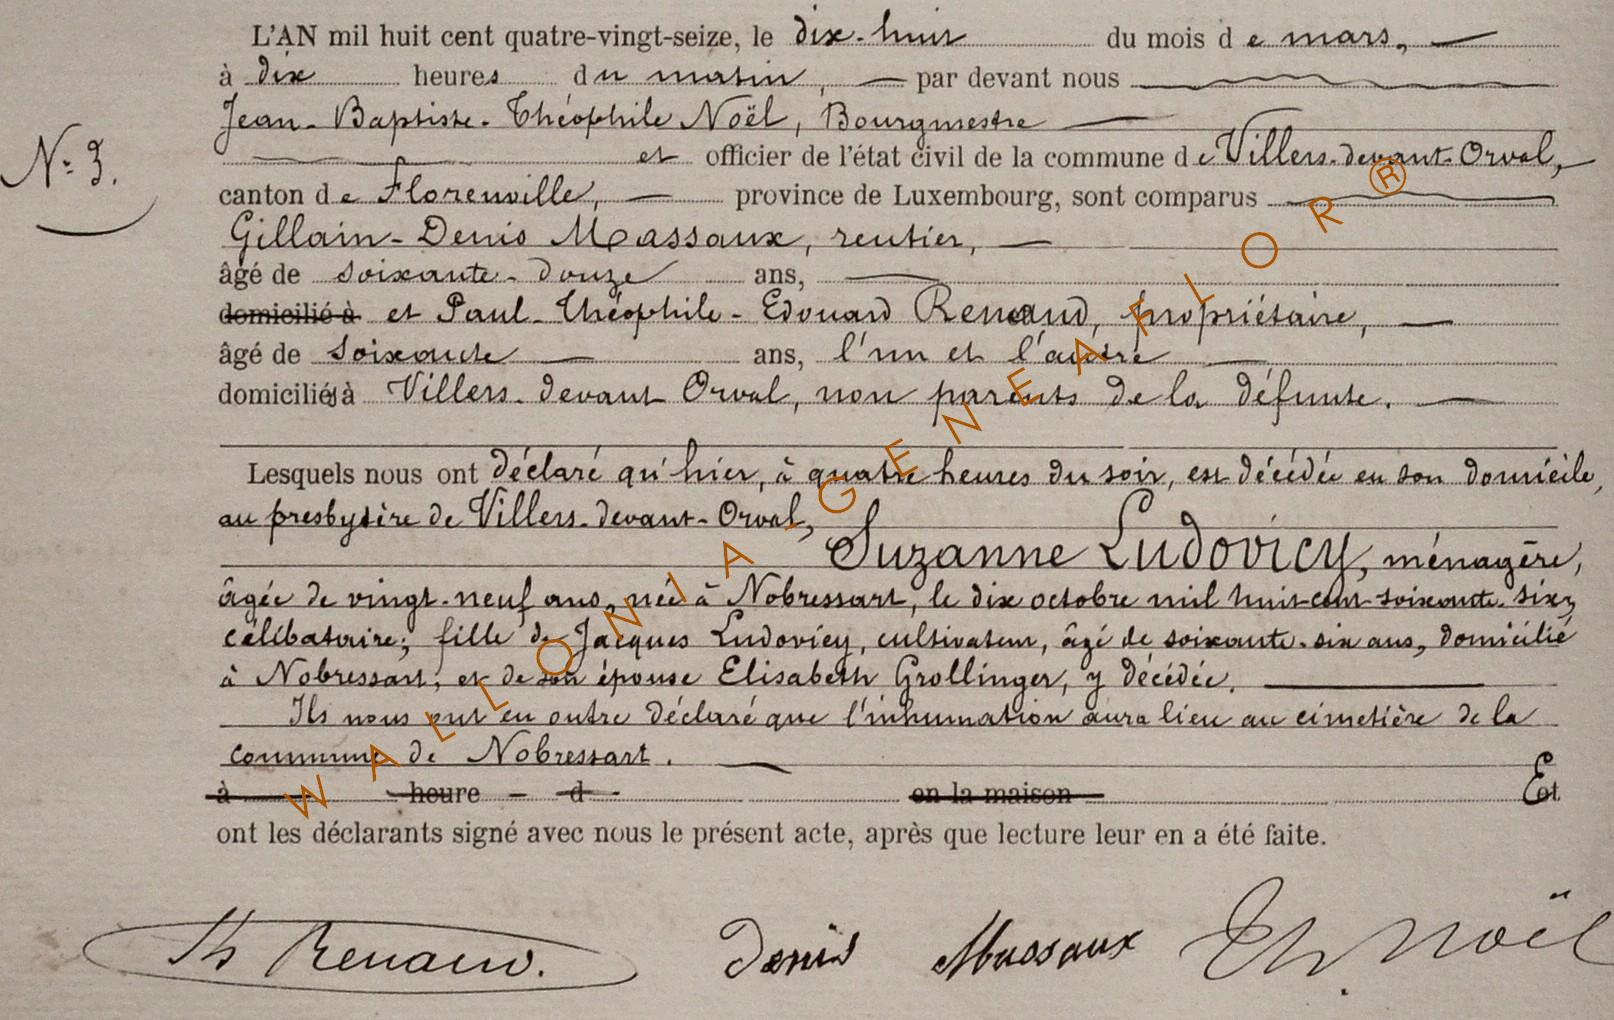 L'AN mil huit cent quatre-vingt-seize, le dix-huit du mois de mars,
à dix heures du matin, par devant nous
Jean-Baptiste-Théophile Noël, Bourgmestre
N: 3.
et officier de l'état civil de la commune de Villers-devant-Orval,
canton de Florenville, province de Luxembourg, sont comparus
Gillain-Denis Massaux, rentier,
âgé de soixante-douze ans,
domicilié à et Paul-Théophile-Edouard Renaud, propriétaire,
âgé de soixante ans, l'un et l'autre
domiciliés à Villers-devant Orval, non parents de la défunte.
Lesquels nous ont déclaré qu'hier, à quatre heures du soir, est décédée en son domicile,
au presbytère de Villers-devant-Orval,
Suzanne Ludovicy, ménagère,
âgée de vingt-neuf ans, née à Nobressart, le dix octobre mil huit-cent-soixante-six,
célibataire; fille de Jacques Ludovicy, cultivateur, âgé de soixante-six ans, domicilié
à Nobressart; et de son épouse Elisabeth Grollinger, y décédée.
Ils nous ont en outre déclaré que l'inhumation aura lieu au cimetière de la
commune de Nobressart.
à heure d en la maison Et
ont les déclarants signé avec nous le présent acte, après que lecture leur en a été faite.
Th Renaud. Denis Massaux Th. Noël
WALLONIA-GENEAFLOR®